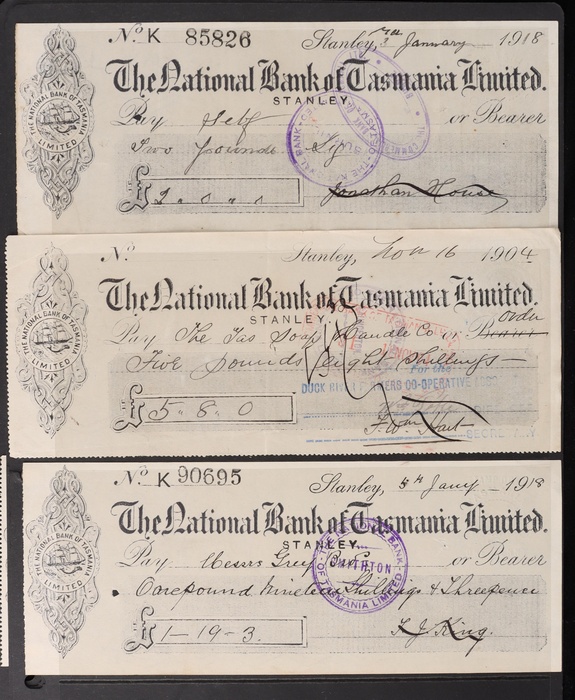 No. K 85826 Stanley, 3rd January 1918
The National Bank of Tasmania Limited.
STANLEY.
Pay Self or Bearer
Two pounds
£ 2.0.0
Jonathan House
THE NATIONAL BANK OF TASMANIA LIMITED
No. Stanley, Nov 16 1904
The National Bank of Tasmania Limited.
STANLEY.
order
Pay The Tas Soap & Candle Co or Bearer
Five pounds eight shillings
For the
DUCK RIVER FARMERS CO-OPERATIVE
£ 5.8.0
SECRETARY
THE NATIONAL BANK OF TASMANIA LIMITED
No. K 90695 Stanley, 5th Jany 1918
The National Bank of Tasmania Limited.
STANLEY.
Pay Messrs or Bearer
SMITHTON
One pound Nineteen Shillings & Threepence
£ 1-19-3.
King.
THE NATIONAL BANK OF TASMANIA LIMITED